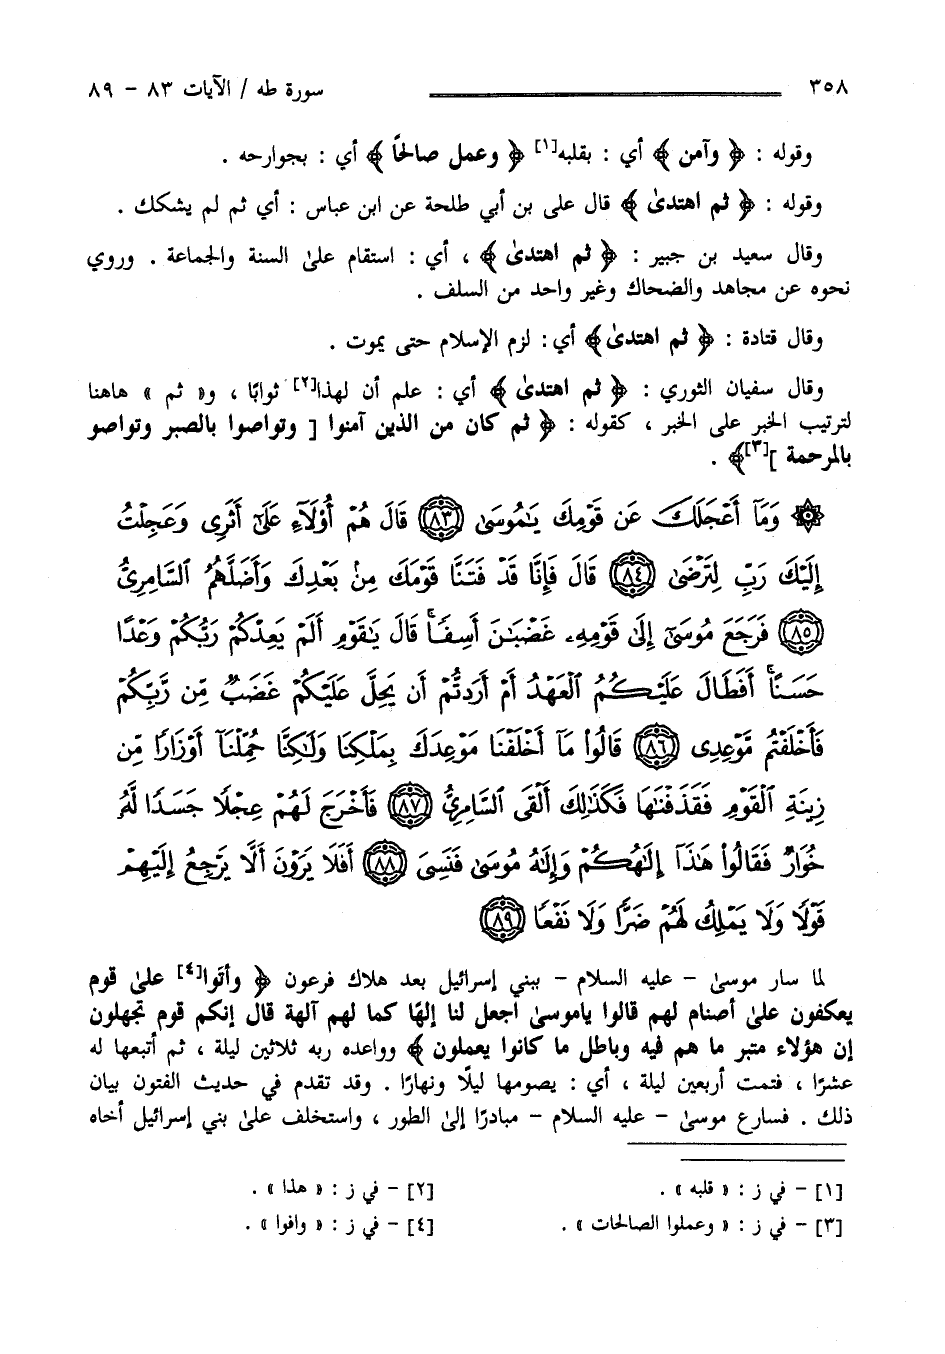 ٣٥٨ سورة طه / الآيات ٨٣ - ٨٩
وقوله : ﴿ وآمن ﴾ أي : بقلبه[١] ﴿ وعمل صالحًا ﴾ أي : بجوارحه .
وقوله : ﴿ ثم اهتدىٰ ﴾ قال على بن أبي طلحة عن ابن عباس : أي ثم لم يشكك .
وقال سعيد بن جبير : ﴿ ثم اهتدىٰ ﴾ ، أي : استقام علىٰ السنة والجماعة . وروي
نحوه عن مجاهد والضحاك وغير واحد من السلف .
وقال قتادة : ﴿ ثم اهتدىٰ ﴾ أي: لزم الإسلام حتى يموت .
وقال سفيان الثوري : ﴿ ثم اهتدىٰ ﴾ أي : علم أن لهذا[٢] ثوابًا ، و« ثم » هاهنا
لترتيب الخبر على الخبر ، كقوله : ﴿ ثم كان من الذين آمنوا [ وتواصوا بالصبر وتواصو
بالمرحمة ][٣]﴾ .
۞ وَمَآ أَعْجَلَكَ عَن قَوْمِكَ يَٰمُوسَىٰ ٨٣ قَالَ هُمْ أُوْلَآءِ عَلَىٰٓ أَثَرِى وَعَجِلْتُ
إِلَيْكَ رَبِّ لِتَرْضَىٰ ٨٤ قَالَ فَإِنَّا قَدْ فَتَنَّا قَوْمَكَ مِنۢ بَعْدِكَ وَأَضَلَّهُمُ ٱلسَّامِرِىُّ
٨٥ فَرَجَعَ مُوسَىٰٓ إِلَىٰ قَوْمِهِۦ غَضْبَٰنَ أَسِفًا ۚ قَالَ يَٰقَوْمِ أَلَمْ يَعِدْكُمْ رَبُّكُمْ وَعْدًا
حَسَنًا ۚ أَفَطَالَ عَلَيْكُمُ ٱلْعَهْدُ أَمْ أَرَدتُّمْ أَن يَحِلَّ عَلَيْكُمْ غَضَبٌ مِّن رَّبِّكُمْ
فَأَخْلَفْتُم مَّوْعِدِى ٨٦ قَالُوا۟ مَآ أَخْلَفْنَا مَوْعِدَكَ بِمَلْكِنَا وَلَٰكِنَّا حُمِّلْنَآ أَوْزَارًا مِّن
زِينَةِ ٱلْقَوْمِ فَقَذَفْنَٰهَا فَكَذَٰلِكَ أَلْقَى ٱلسَّامِرِىُّ ٨٧ فَأَخْرَجَ لَهُمْ عِجْلًا جَسَدًا لَّهُۥ
خُوَارٌ فَقَالُوا۟ هَٰذَآ إِلَٰهُكُمْ وَإِلَٰهُ مُوسَىٰ فَنَسِىَ ٨٨ أَفَلَا يَرَوْنَ أَلَّا يَرْجِعُ إِلَيْهِمْ
قَوْلًا وَلَا يَمْلِكُ لَهُمْ ضَرًّا وَلَا نَفْعًا ٨٩
لما سار موسىٰ - عليه السلام - ببني إسرائيل بعد هلاك فرعون ﴿ وأتوا[٤] علىٰ قوم
يعكفون علىٰ أصنام لهم قالوا ياموسىٰ اجعل لنا إلهًا كما لهم آلهة قال إنكم قوم تجهلون
إن هؤلاء متبر ما هم فيه وباطل ما كانوا يعملون ﴾ وواعده ربه ثلاثين ليلة ، ثم أتبعها له
عشرًا ، فتمت أربعين ليلة ، أي : يصومها ليلًا ونهارًا . وقد تقدم في حديث الفتون بيان
ذلك . فسارع موسىٰ - عليه السلام - مبادرًا إلىٰ الطور ، واستخلف علىٰ بني إسرائيل أخاه
[١] - في ز : « قلبه » . [٢] - في ز : « هذا » .
[٣] - في ز : « وعملوا الصالحات » . [٤] - في ز : « وافوا » .